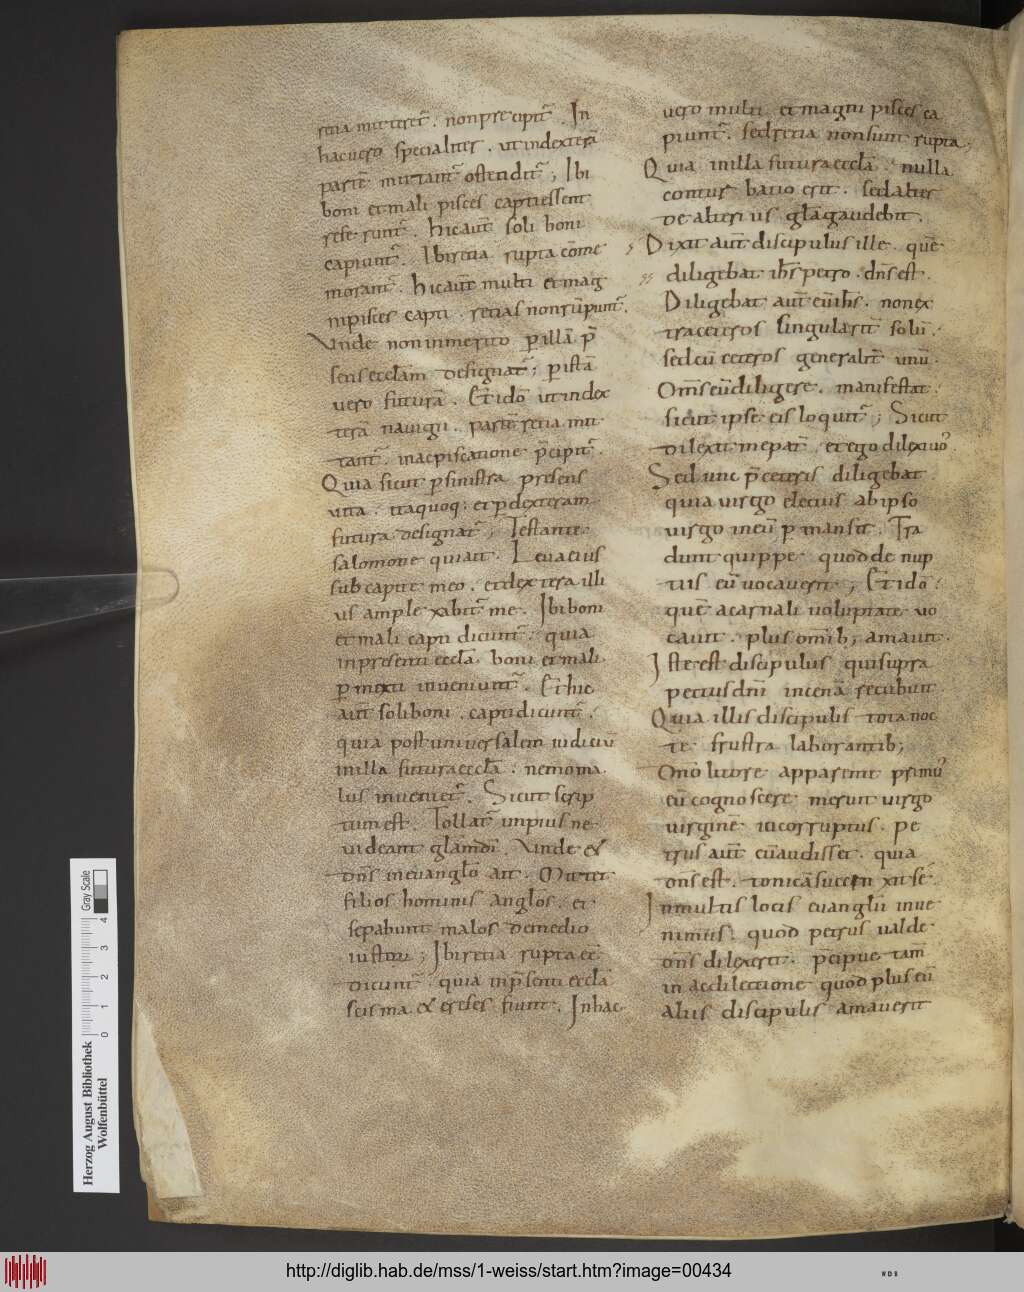 retia mitteret̄. non precipit̄. In
hac uero specialiter. ut in dexterā
partē mittant̄ ostendit̄; Ibi
boni et mali pisces capti essent
rese runt. hic aut̄ soli boni
capiunt̄. Ibi retia rupta cōme
morant̄. hic aut̄ multi et mag
ni pisces capti. retia s non rūpunt̄.
Unde non inmerito p illā p̄
sens ecclā m designat̄; p istā
uero futurā. Et idō ut in dex
terā nauigii. partē retia mit
tant̄. in ac piscatione p̄cipit̄.
Quia sicut p sinistra presens
uita. ita quoq; et p dexteram
futura designat̄; Testante
salomone qui ait. Leua eius
sub capite meo. et dextera illi
us ample xabit̄ me. Ibi boni
et mali capti dicunt̄. quia
in presenti eccla. boni et mali
p mixti inueniunt̄. Et hic
aut̄ soli boni. capti dicunt̄.
quia post uniuersalem iudiciū
in illa futura eccla. nemo ma
lus inueniet̄. Sicut scrip
tum est. Tollat̄ impius ne
uideant glām dī. Unde &
dn̄s in euanglō ait. Mittet
filios hominis anglōs. et
sepabunt malos de medio
iustoru; Ibi retia rupta ee
dicunt̄. quia in p̄senti ecclā
scisma & ereses fiunt. In hac
uero multi et magni pisces ca
piunt̄. sed retia non sunt rupta;
Quia in illa futura ecclā. nulla
contur batio erit. sed alter
de alteri us glā gaudebit.
Dixit aut̄ discipulus ille quē
diligebat ih̄s petro. dn̄s est.
Diligebat aut̄ eū ih̄s. non ex
tra ceteros singularit̄ solū.
sed cū ceteros generalit̄ unū.
Om̄s eū diligere. manifestat.
sicut ipse eis loquit̄; Sicut
dilexit me pat̄. et ego dilexi uo'
Sed unc p̄ ceteris diligebat
quia uirgo electus ab ipso
uirgo in eū p mansit. Tra
dunt quippe. quod de nup
tiis eū uocauerit; Et idō.
quē a carnali uoluptate uo
cauit. plus om̄ib; amauit.
Iste est discipulus qui supra
pectus dn̄i in cenā recubuit.
Quia illis discipulis tota noc
te frustra laborantib;
Dn̄o litore apparente primu'
eū cognoscere meruit uirgo
uirginē incorruptus. Pe
trus aut̄ cū audisset. quia
dn̄s est. tonicā succin xit se.
In multis locis euanglii inue
nimus. quod petrus ualde
dn̄s dilexerit. p̄cipue tam̄
in ac dilectione quod plus eū
aliis discipulis amauerit
Herzog August Bibliothek
Wolfenbüttel
0 1 2 3 4
Gray Scale
http://diglib.hab.de/mss/1-weiss/start.htm?image=00434